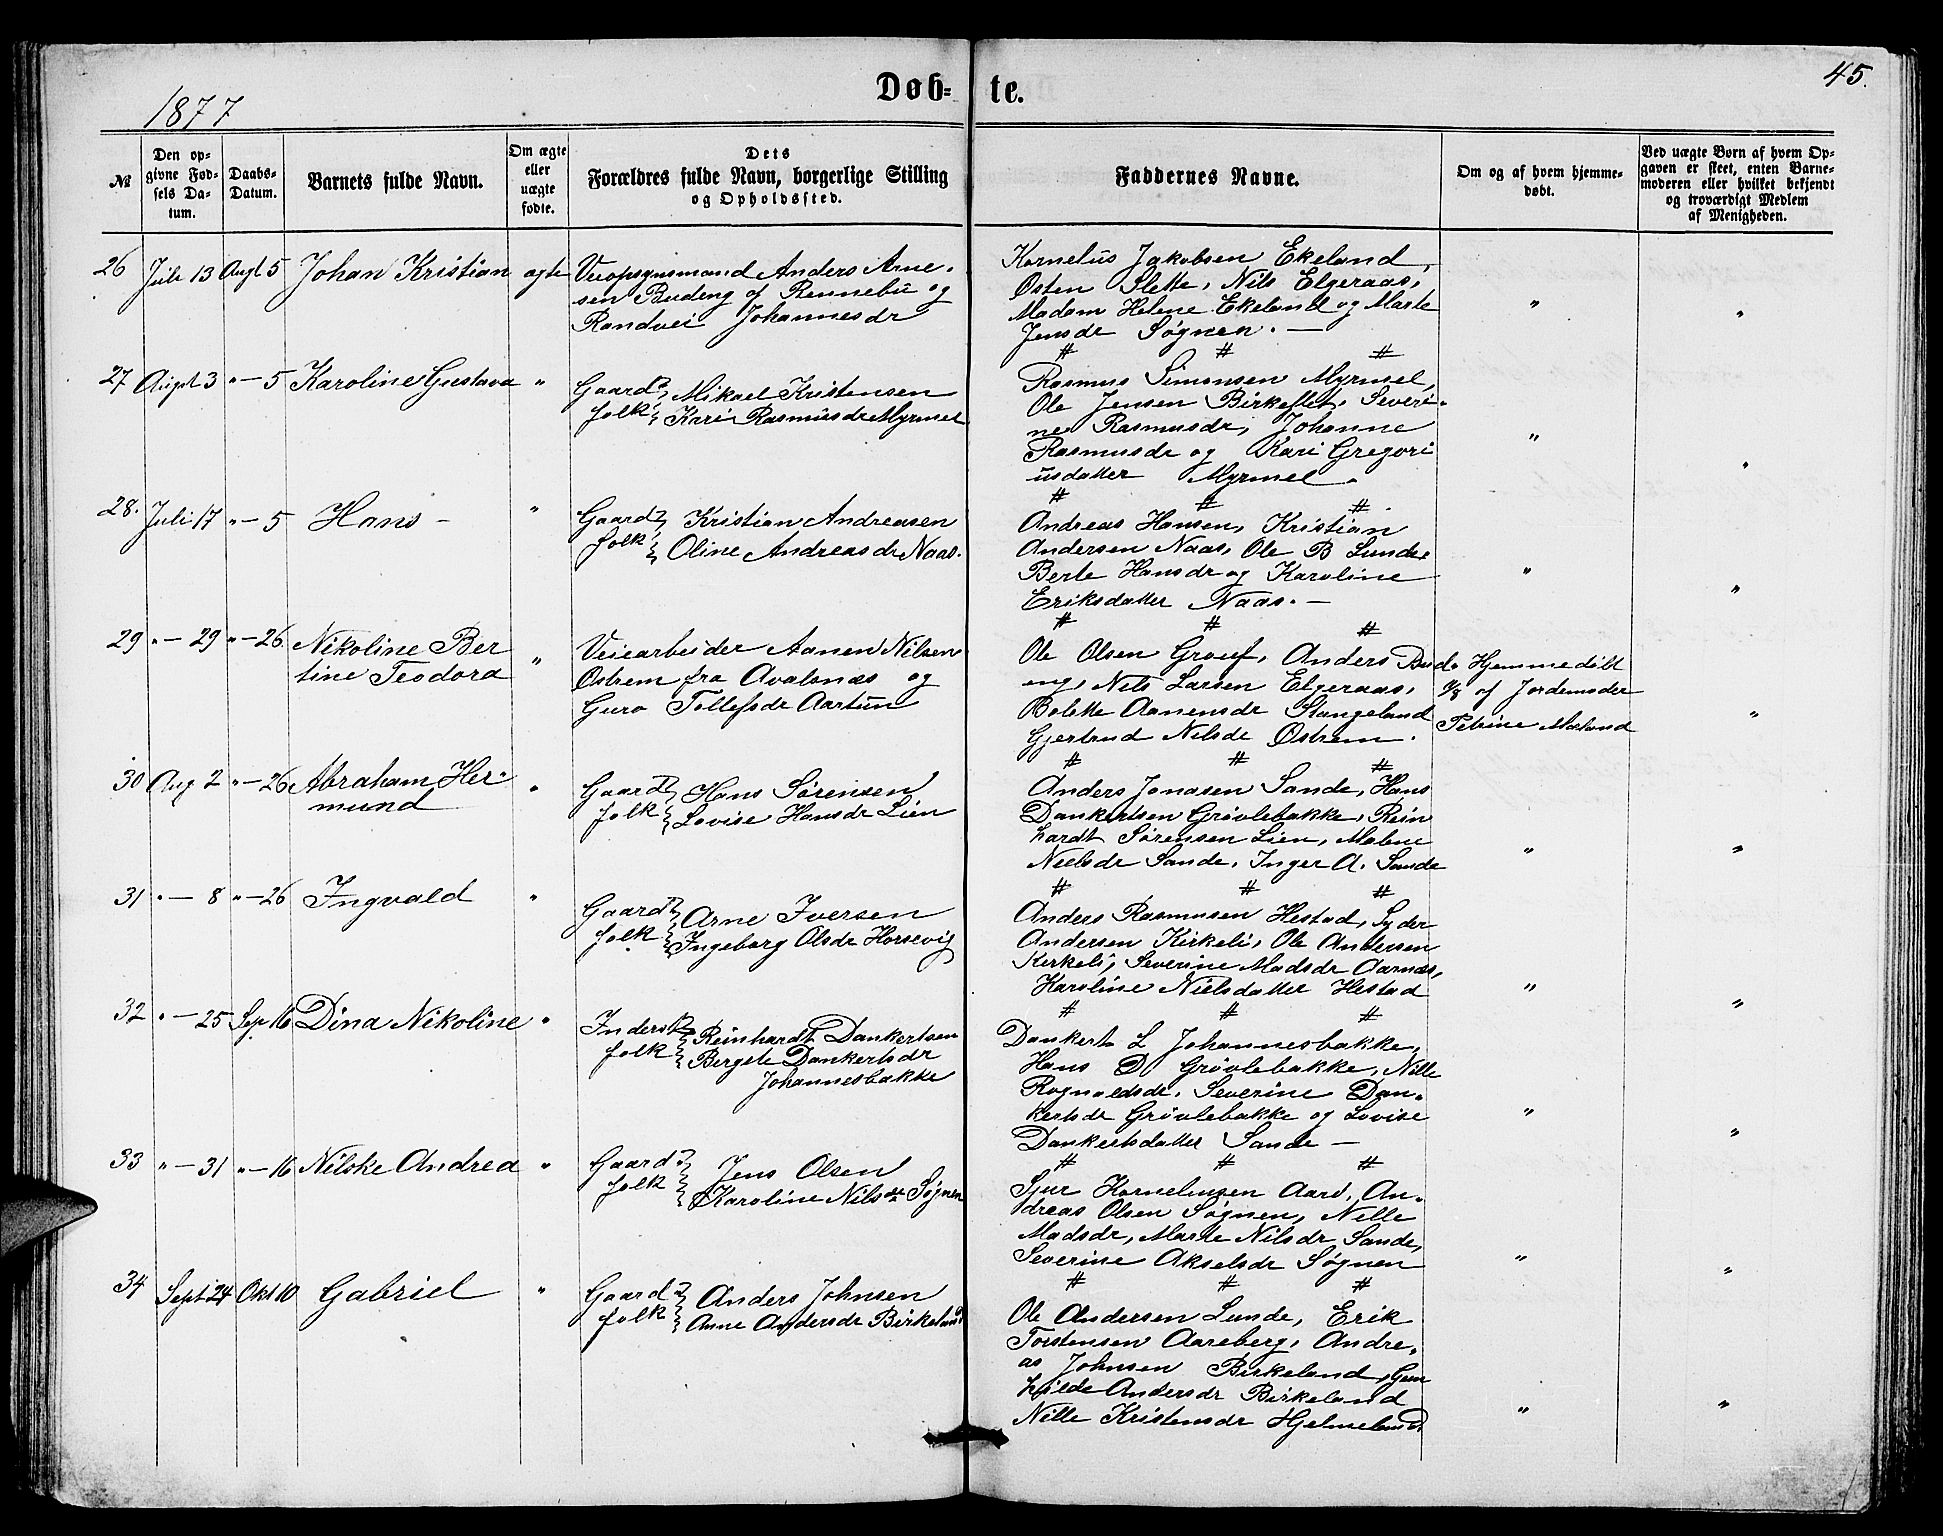 1877
Døb-te.
45.
№
Den op-
givne Fød-
sels Da-
tum.
Daabs-
Datum.
Barnets fulde Navn.
Om ægte
eller
uægte
fødte.
Dets
Forældres fulde Navn, borgerlige Stilling
og Opholdssted.
Faddernes Navne.
Om og af hvem hjemme-
døbt.
Ved uægte Børn af hvem Op-
gaven er skeet, enten Barne-
moderen eller hvilket bekjendt
og troværdigt Medlem
af Menigheden.
26 Juli 13 Augt 5 Johan Kristian ægte
Veiopsynsmand Anders Arne-
sen Budeng af Rennebu og
Randvei Johannesdr
Kornelius Jakobsen Ekeland,
Østen Slette, Nils Elgeraas,
Madam Helene Ekeland og Marte
Jensdr Søgnen. —
" "
# # #
27 Augst 3 " — 5 Karoline Gustava "
Gaard- Mikael Kristensen
folk Kari Rasmusdr Myrmel
Rasmus Simonsen Myrmel,
Ole Jensen Birkeflet, Severi-
ne Rasmusdr, Johanne
Rasmusdr og Kari Gregori
usdatter Myrmel.
" "
# # #
28. Juli 17 " — 5 Hans — "
Gaard- Kristian Andreasen
folk Oline Andreasdr Naas.
Andreas Hansen, Kristian
Andersen Naas, Ole B Lunde,
Berte Hansdr og Karoline
Eriksdatter Naas. —
" "
# # #
29 " — 29 " — 26. Nikoline Ber
tine Teodora "
Veiearbeider Aanen Nilsen
Østrem fra Avalsnæs og
Guro Tollefsdr Aartun
Ole Olsen Groef, Anders Bud-
eng, Nils Larsen Elgeraas,
Bolette Aanensdr Stangeland
Gjertrud Nilsdr Østrem.
Hjemmedøbt
af Jordemoder
Petrine Mæland
"
# # #
30 Aug 2 " — 26 Abraham Her-
mund "
Gaard- Hans Sørensen
folk Lovise Hansdr Lien
Anders Jonasen Sande, Hans
Dankertsen Grøvlebakke, Rein
hardt Sørensen Lien, Malene
Nielsdr Sande, Inger A. Sande
" "
# # #
31 " — 8 " — 26 Ingvald "
Gaard- Arne Iversen
folk Ingeborg Olsdr Horsevig
Anders Rasmusen Hestad, Syder
Andersen Kirkeli, Ole Andersen
Kirkeli, Severine Madsdr Aarnæs,
Karoline Nielsdatter Hestad
" "
# # #
32 " — 25 Sep 16 Dina Nikoline "
Inderst- Reinhardt Dankertsen
folk Bergete Dankertsdr
Johannesbakke
Dankert L Johannesbakke,
Hans D. Grøvlebakke, Nille
Rognvaldsdr. Severine Dan-
kertsdr Grøvlebakke og Lovise
Dankertsdatter Sande —
" "
# # #
33 " — 31 " — 16 Nilske Andrea "
Gaard- Jens Olsen
folk Karoline Nilsdr Søgnen
Sjur Kornelnusen Aard, An-
dreas Olsen Søgnen, Nille
Madsdr, Marte Nilsdr Sande,
Severine Akselsdr Søgnen
" "
# # #
34 Sept 24 Okt 10 Gabriel "
Gaard- Anders Johnsen
folk Anne Andersdr Birkeland
Ole Andersen Lunde, Erik
Torstensen Aareberg, Andre-
as Johnsen Birkeland, Gun
hilde Andersdr Birkeland
Nille Kristensdr Hjelmeland.
" "